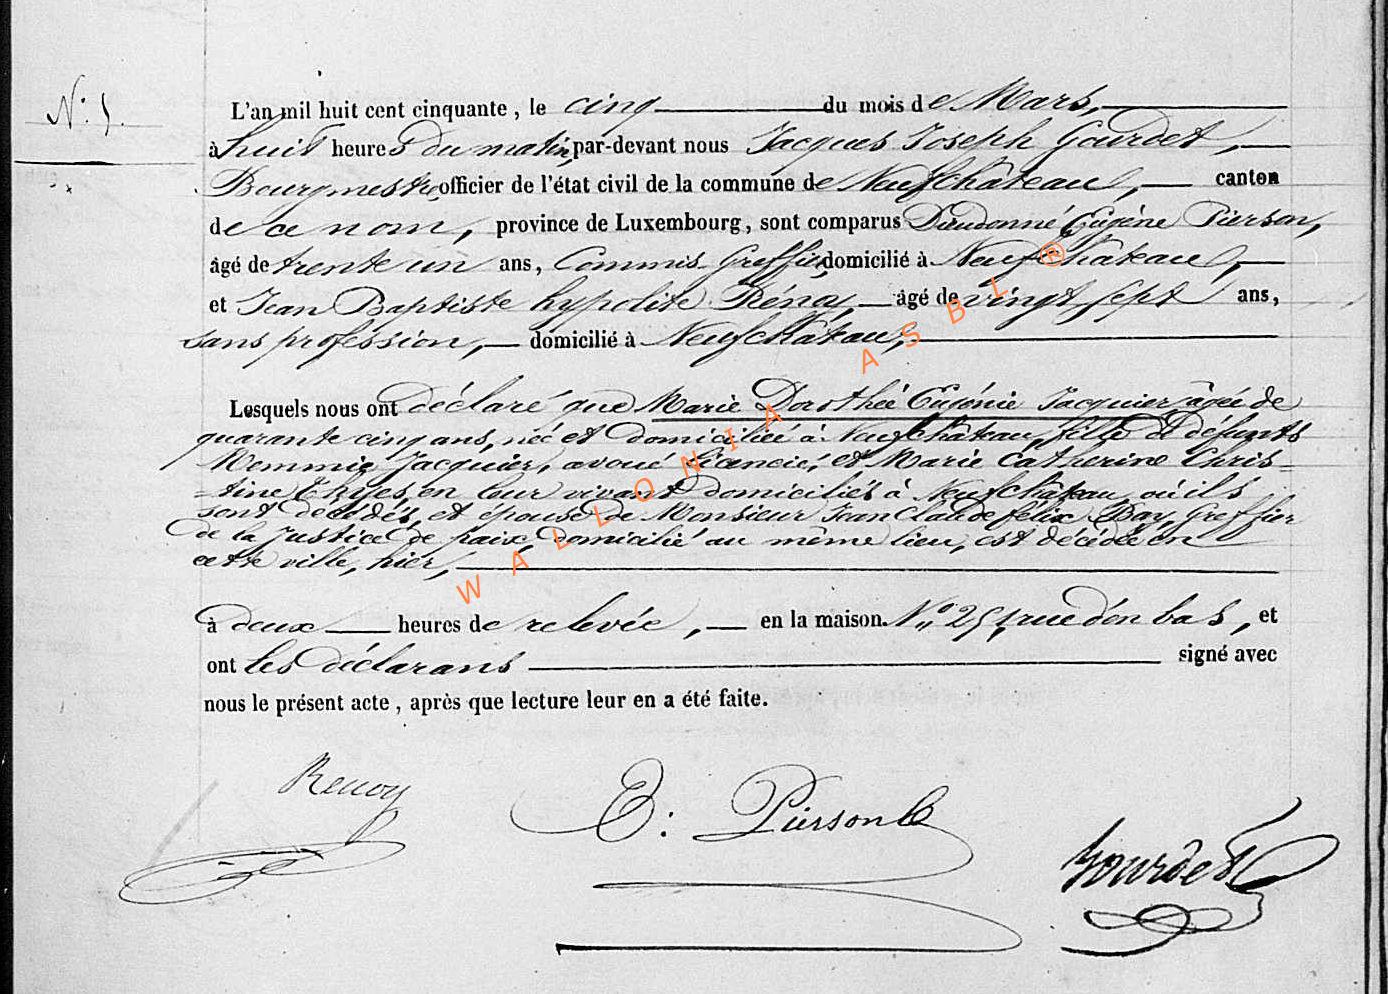 N.° 5.
L'an mil huit cent cinquante, le cinq du mois de Mars,
à huit heures du matin, par-devant nous Jacques Joseph Gourdet,
Bourgmestre, officier de l'état civil de la commune de Neufchâteau, canton
de ce nom, province de Luxembourg, sont comparus Dieudonné Eugène Pierson,
âgé de trente un ans, Commis Greffier, domicilié à Neufchâteau,
et Jean Baptiste hypolite Rénoy, âgé de vingt sept ans,
sans profession, domicilié à Neufchâteau,
Lesquels nous ont déclaré que Marie Dorothée Eugénie Jacquier, âgée de
quarante cinq ans, née et domiciliée à Neufchâteau, fille de défunts
Jacquier, avoué licencié, et Marie Catherine Chris-
-tine Thyes, en leur vivant domiciliés à Neufchâteau, où ils
sont décédés, et épouse de Monsieur Jean Claude félix Day, Greffier
de la Justice de paix domicilié au même lieu, est décédée en
cette ville, hier,
à deux heures de relevée, en la maison N° 25, rue d'en bas, et
ont les déclarans signé avec
nous le présent acte, après que lecture leur en a été faite.
Renoy
E: Pierson
Gourdet
WALLONIA ASBL ®